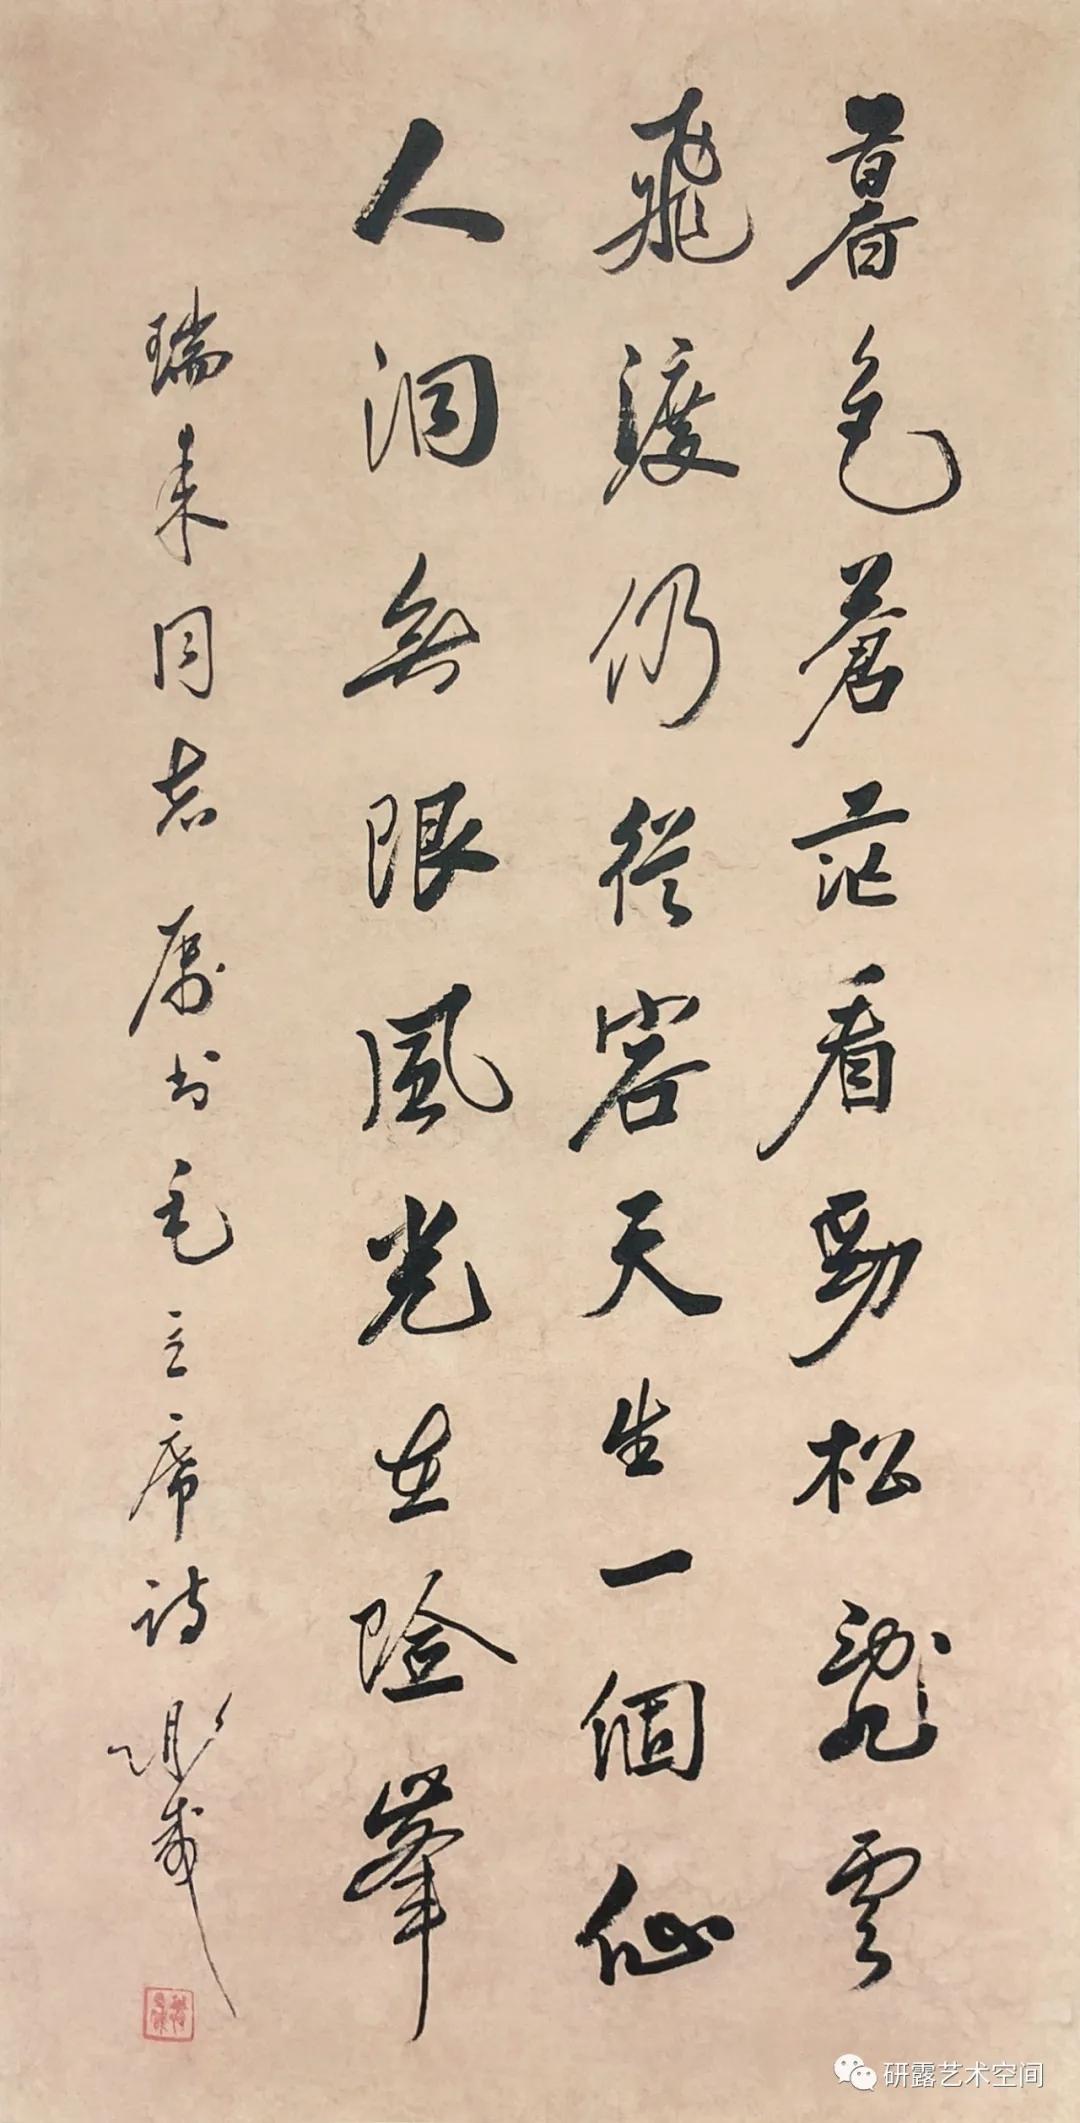 暮色蒼茫看勁松亂雲
飛渡仍從容天生一個仙
人洞無限風光在險峰
瑞來同志属书毛主席诗
研露艺术空间